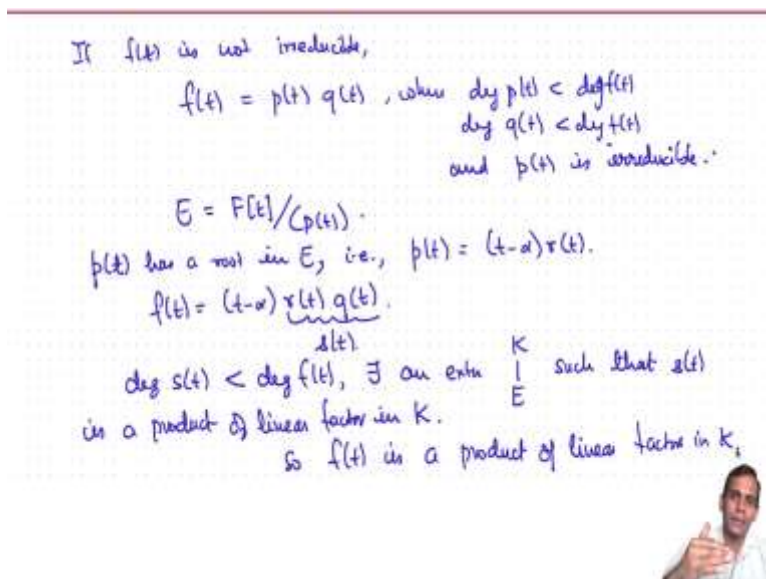 If f(t) is not irreducible,
f(t) = p(t) q(t), where deg p(t) < deg f(t)
deg q(t) < deg f(t)
and p(t) is irreducible.
E = F[t]/(p(t)).
p(t) has a root in E, i.e., p(t) = (t-α) r(t).
f(t) = (t-α) r(t) q(t).
s(t)
deg s(t) < deg f(t), ∃ an extn K | E such that s(t)
is a product of linear factor in K.
So f(t) is a product of linear factor in K.